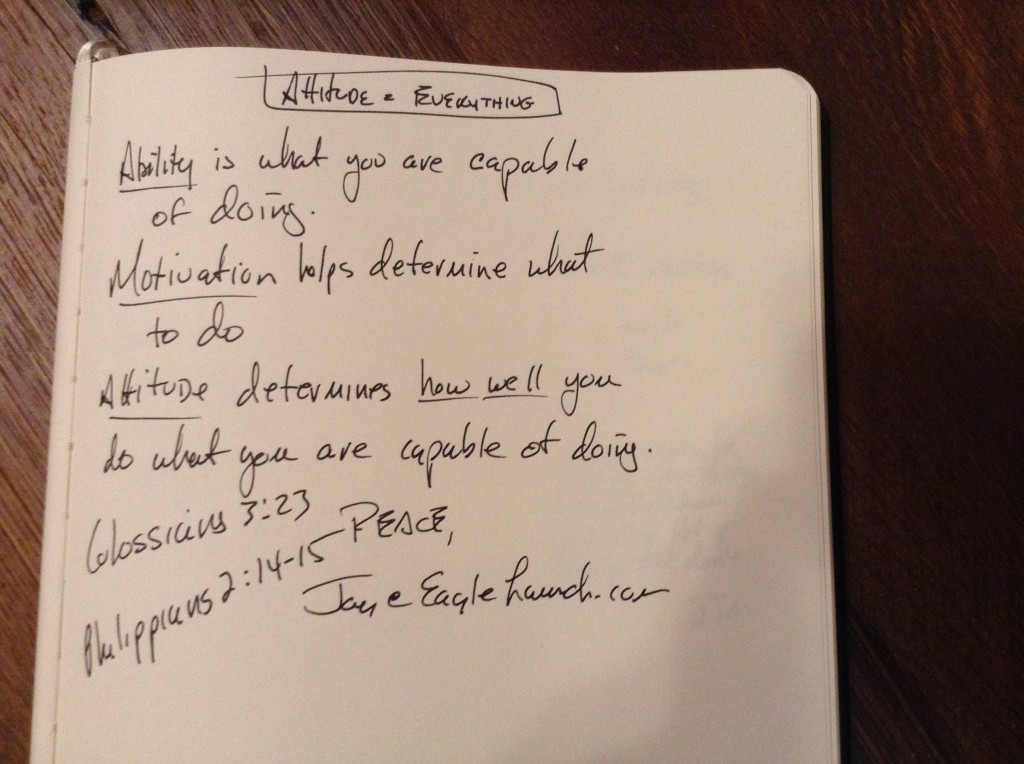 ATTITUDE = EVERYTHING
Ability is what you are capable
of doing.
Motivation helps determine what
to do
ATTITUDE determines how well you
do what you are capable of doing.
Colossians 3:23
Philippians 2:14-15
PEACE,
Jay @ EagleLaunch.com